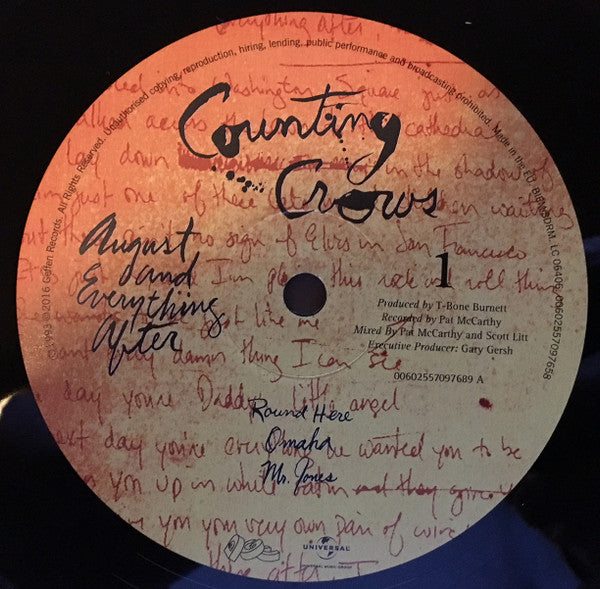 Unauthorised copying, reproduction, hiring, lending, public performance and broadcasting prohibited. Made in the EU. BIEM/SDRM. LC 06406. 00602557097658
1993 ©2016 Geffen Records. All Rights Reserved.
Everything After
Washington Square just as
walked across the cathedral
lay down in the shadow of
just one of these waiting
no sign of Elvis in San Francisco
I'm this rock and roll thing
just like me
damn thing I can see
day you're Daddy's little angel
next day you're everything he wanted you to be
you up in white satin and they
you your very own pair of wings
after I
Counting
Crows
August
and
Everything
After
1
Produced by T-Bone Burnett
Recorded by Pat McCarthy
Mixed By Pat McCarthy and Scott Litt
Executive Producer: Gary Gersh
00602557097689 A
Round Here
Omaha
Mr. Jones
UNIVERSAL
UNIVERSAL MUSIC GROUP